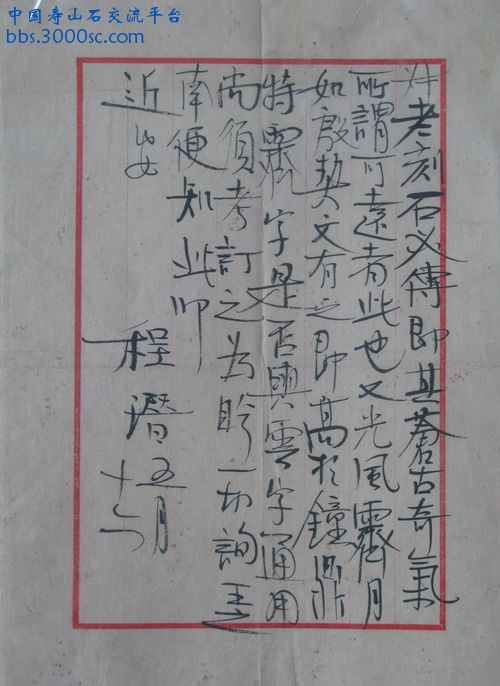 中国寿山石交流平台
bbs.3000sc.com
老刻石必傳即其蒼古奇氣
所謂可遠者此也又光風霽月
如殷契文有之即高於鐘鼎
特霽字是否與雲字通用
尚須考訂之為盼一切詢
南便知此叩
近安
程潛五月
十